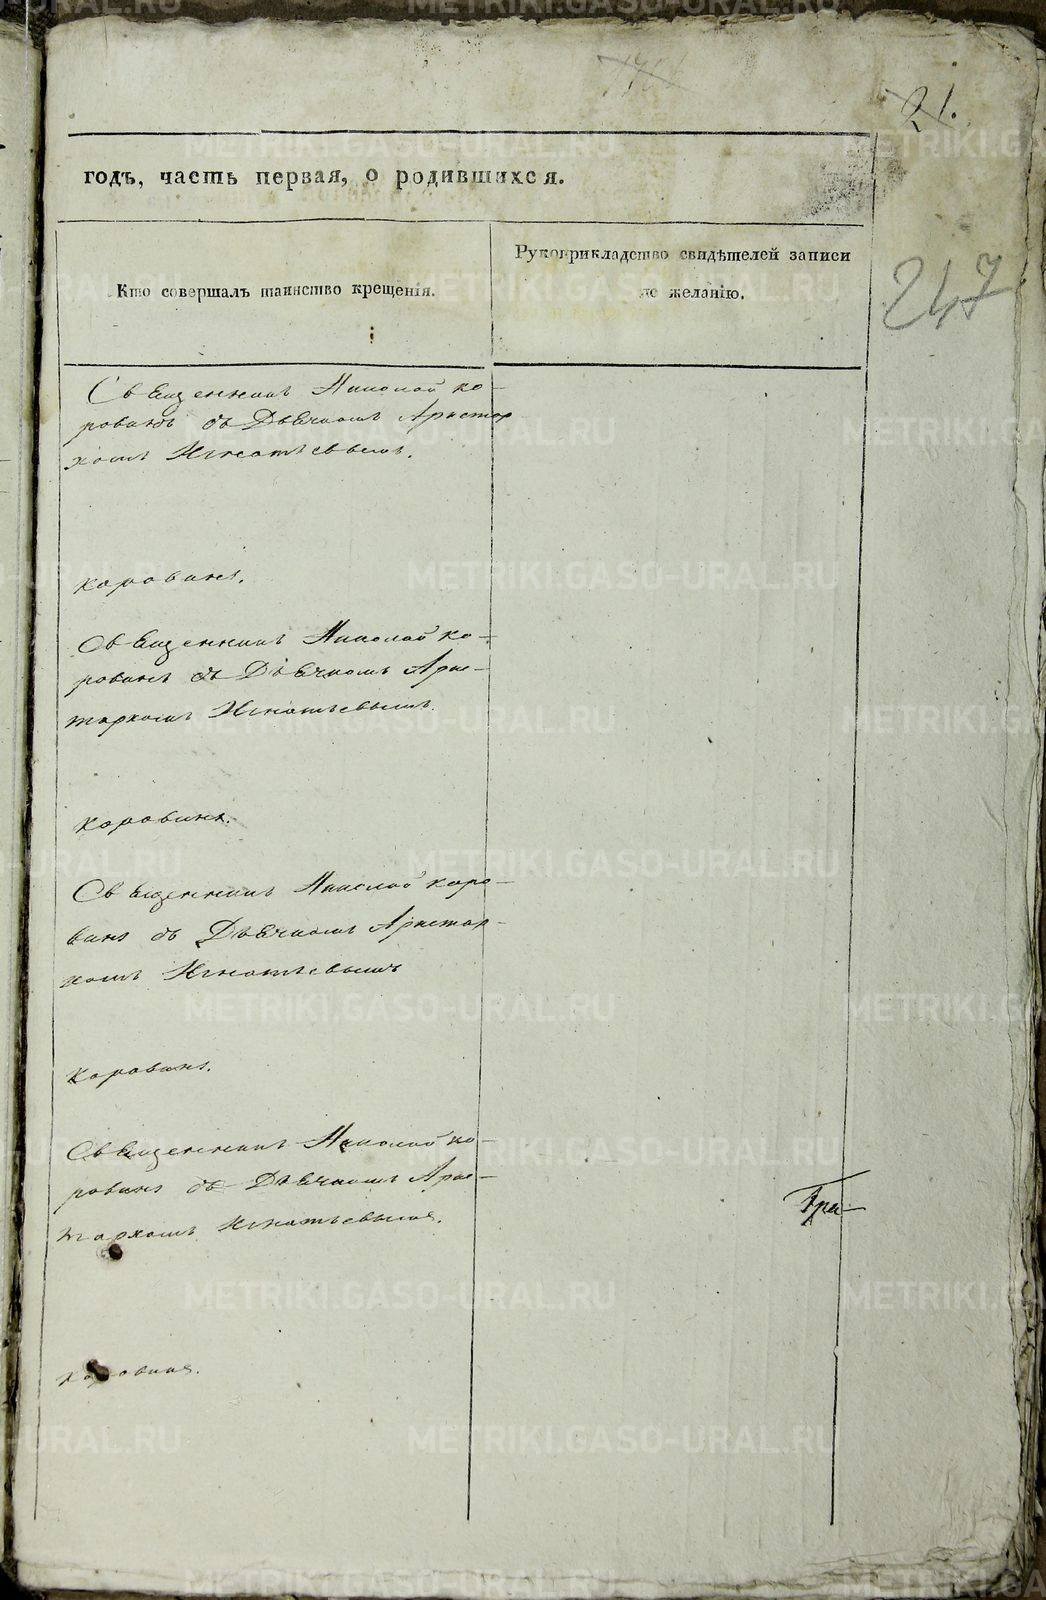 21.
247
годъ, часть первая, о родившихся.
Кто совершалъ таинство крещенія.
Рукоприкладство свидѣтелей записи
по желанію.
Священникъ Николай Ко-
ровинъ съ Дьячкомъ Аристар
хомъ Игнатьевымъ.
Коровинъ.
Священникъ Николай Ко-
ровинъ съ Дьячкомъ Арис-
тархомъ Игнатьевымъ
Коровинъ.
Священникъ Николай Коро-
винъ съ Дьячкомъ Аристар-
хомъ Игнатьевымъ
Коровинъ.
Священникъ Николай Ко-
ровинъ съ Дьячкомъ Арис-
тархомъ Игнатьевымъ.
Коровинъ.
METRIKI.GASO-URAL.RU